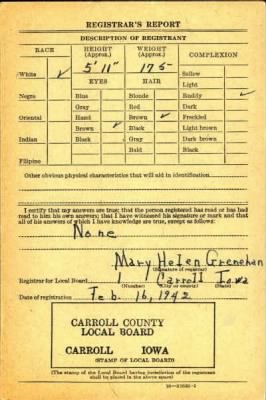 REGISTRAR'S REPORT
DESCRIPTION OF REGISTRANT
RACE HEIGHT (Approx.) WEIGHT (Approx.) COMPLEXION
White ✓ 5' 11" 175 Sallow
EYES HAIR Light
Negro Blue Blonde Ruddy ✓
Gray Red Dark
Oriental Hazel Brown ✓ Freckled
Brown ✓ Black Light brown
Indian Black Gray Dark brown
Bald Black
Filipino
Other obvious physical characteristics that will aid in identification
I certify that my answers are true; that the person registered has read or has had
read to him his own answers; that I have witnessed his signature or mark and that
all of his answers of which I have knowledge are true, except as follows:
None
Mary Helen Grenehan
(Signature of registrar)
Registrar for Local Board 1 Carroll Iowa
(Number) (City or county) (State)
Date of registration Feb. 16, 1942
CARROLL COUNTY
LOCAL BOARD
CARROLL IOWA
(STAMP OF LOCAL BOARD)
(The stamp of the Local Board having jurisdiction of the registrant
shall be placed in the above space)